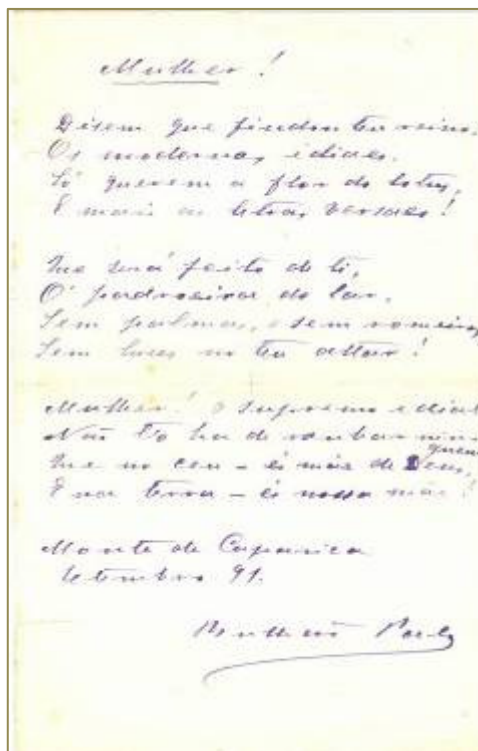 Mulher!
Disem que findou teu reino.
Os modernos idiaes.
Só querem a flor do lotus,
E mais as letras versaes!
Que será feito de ti,
O' padroeira do lar,
Sem palmas, e sem romeiros
Sem luzes no teu altar!
Mulher! o supremo idial
Não t'o ha de roubar ninguem
Que no ceu – és mãe de Deus,
E na terra – és nossa mãe!
Monte de Caparica
Setembro 91.
Bulhão Pato